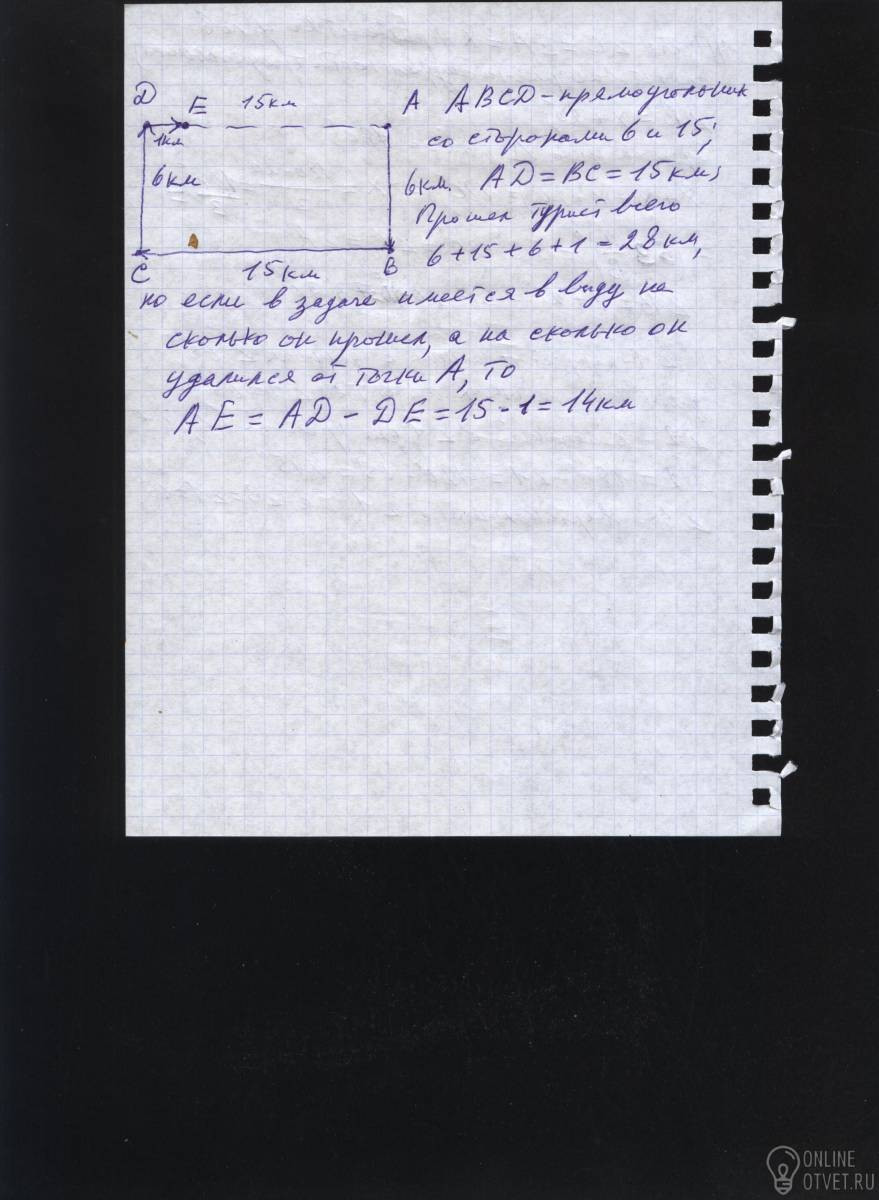 D E 15км A ABCD - прямоугольник
со сторонами 6 и 15;
1км
6км 6км. AD = BC = 15км;
Прошел турист всего
6 + 15 + 6 + 1 = 28 км,
C 15км B
но если в задаче имеется в виду не
сколько он прошел, а на сколько он
удалился от точки A, то
AE = AD - DE = 15 - 1 = 14км
ONLINE
OTVET.RU